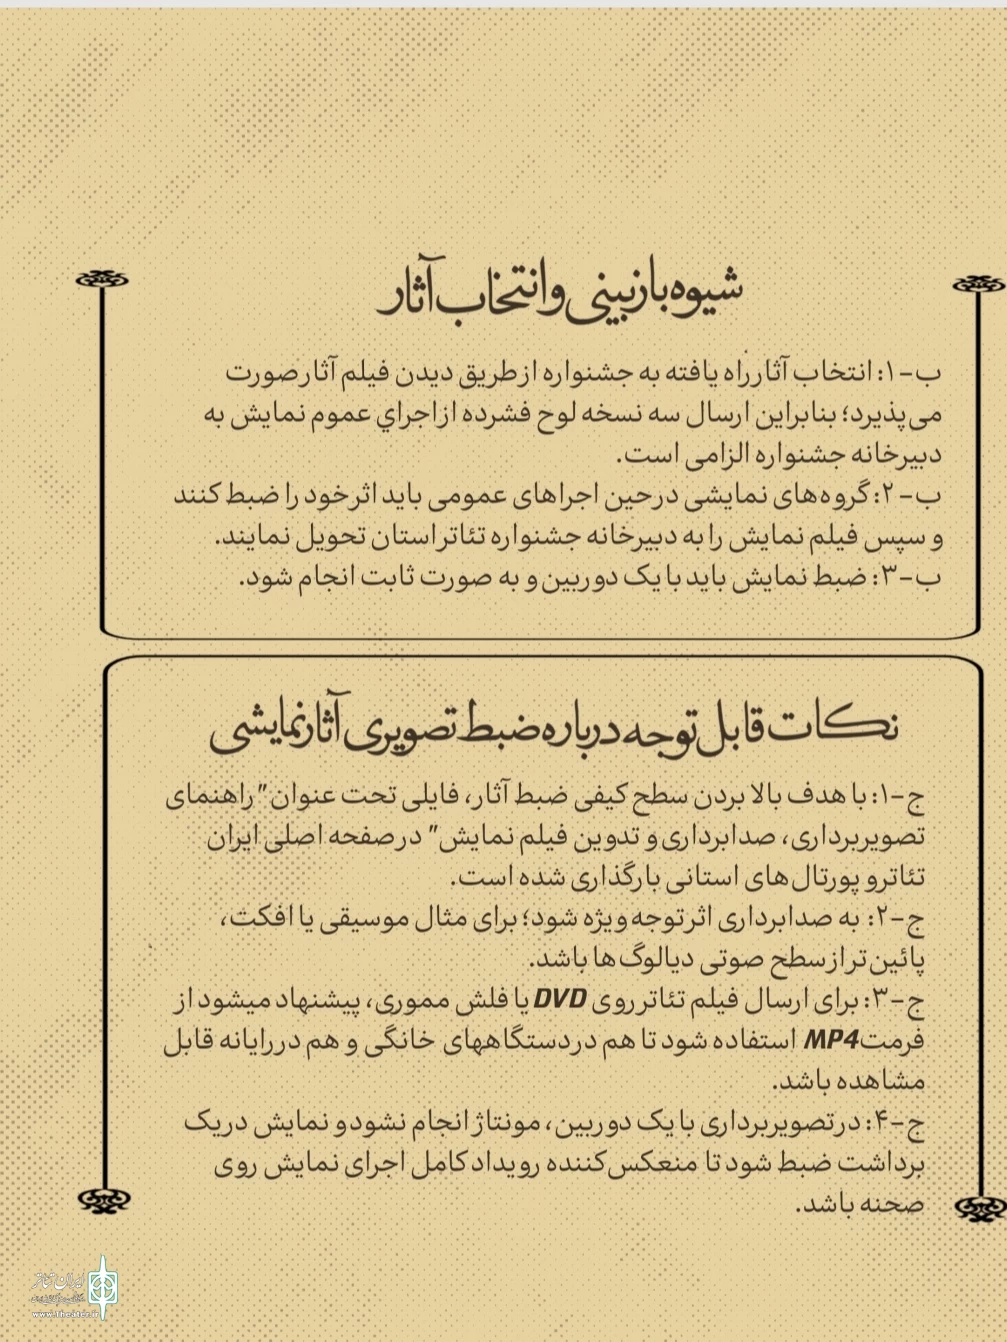 شیوه بازبینی و انتخاب آثار
ب-۱: انتخاب آثار راه یافته به جشنواره از طریق دیدن فیلم آثار صورت
می‌پذیرد؛ بنابراین ارسال سه نسخه لوح فشرده از اجراي عموم نمایش به
دبیرخانه جشنواره الزامی است.
ب-۲: گروه‌های نمایشی در حین اجراهای عمومی باید اثر خود را ضبط کنند
و سپس فیلم نمایش را به دبیرخانه جشنواره تئاتر استان تحویل نمایند.
ب-۳: ضبط نمایش باید با یک دوربین و به صورت ثابت انجام شود.
نکات قابل توجه درباره ضبط تصویری آثار نمایشی
ج-۱: با هدف بالا بردن سطح کیفی ضبط آثار، فایلی تحت عنوان "راهنمای
تصویربرداری، صدابرداری و تدوین فیلم نمایش" در صفحه اصلی ایران
تئاتر و پورتال‌های استانی بارگذاری شده است.
ج-۲: به صدابرداری اثر توجه ویژه شود؛ برای مثال موسیقی یا افکت،
پائین‌تر از سطح صوتی دیالوگ‌ها باشد.
ج-۳: برای ارسال فیلم تئاتر روی DVD یا فلش مموری، پیشنهاد میشود از
فرمت MP4 استفاده شود تا هم در دستگاههای خانگی و هم در رایانه قابل
مشاهده باشد.
ج-۴: در تصویربرداری با یک دوربین، مونتاژ انجام نشود و نمایش در یک
برداشت ضبط شود تا منعکس‌کننده رویداد کامل اجرای نمایش روی
صحنه باشد.
ایران تئاتر
www.Theater.ir